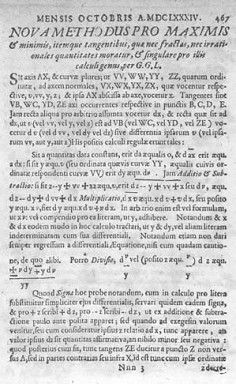 MENSIS OCTOBRIS A. MDCLXXXIV. 467
NOVA METHODUS PRO MAXIMIS
& minimis, itemque tangentibus, qua nec fractas, nec irra-
tionales quantitates moratur, & singulare pro illis
calculi genus, per G.G.L.
Sit axis AX, & curvæ plures, ut VV, WW, YY, ZZ, quarum ordi-
natæ, ad axem normales, VX, WX, YX, ZX, quæ vocentur respe-
ctive, v, w, y, z; & ipsa AX abscissa ab axe, vocetur x. Tangentes sint
VB, WC, YD, ZE axi occurrentes respective in punctis B, C, D, E.
Jam recta aliqua pro arbitrio assumta vocetur dx, & recta quæ sit ad
dx, ut v (vel w, vel y, vel z) est ad VB (vel WC, vel YD, vel ZE) vo-
cetur dv (vel dw, vel dy vel dz) sive differentia ipsarum v (vel ipsa-
rum w, aut y, aut z) His positis calculi regulæ erunt tales:
Sit a quantitas data constans, erit da æqualis 0, & d ax erit æqu.
a dx: si sit y æqu. v (seu ordinata quævis curvæ YY, æqualis cuivis or-
dinatæ respondenti curvæ VV) erit dy æqu. dv. Jam Additio & Sub-
tractio: si sit z - y + w + x æqu. v, erit d z - y + w + x seu dv, æqu.
dz - dy + dw + dx. Multiplicatio, d xv æqu. x dv + v dx, seu posito
y æqu. xv, fiet dy æqu. x dv + v dx. In arbitrio enim est vel formulam,
ut xv, vel compendio pro ea literam, ut y, adhibere. Notandum & x
& dx eodem modo in hoc calculo tractari, ut y & dy, vel aliam literam
indeterminatam cum sua differentiali. Notandum etiam non dari
semper regressum a differentiali Æquatione, nisi cum quadam cautio-
ne, de quo alibi. Porro Divisio, d v/y vel (posito z æqu. v/y) dz æqu.
± v dy ∓ y dv
yy
Quoad Signa hoc probe notandum, cum in calculo pro litera
substituitur simpliciter ejus differentialis, servari quidem eadem signa,
& pro + z scribi + dz, pro - z scribi - dz, ut ex additione & subtra-
ctione paulo ante posita apparet; sed quando ad exegesin valorum
venitur, seu cum consideratur ipsius z relatio ad x, tunc apparere, an
valor ipsius dz sit quantitas affirmativa, an nihilo minor seu negativa:
quod posterius cum fit, tunc tangens ZE ducitur a puncto Z non ver-
sus A, sed in partes contrarias seu infra X, id est tunc cum ipsæ ordinatæ
Nnn 3